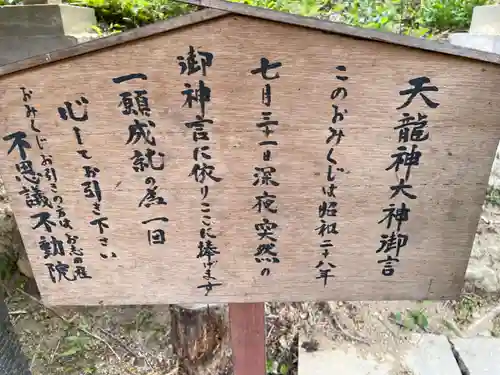 天龍神大神御言
このおみくじは昭和二十八年
七月三十一日深夜突然の
御神言に依りここに捧げます
一願成就の為一回
心してお引き下さい
おみくじお引きの方はお志の程
不思議不動院